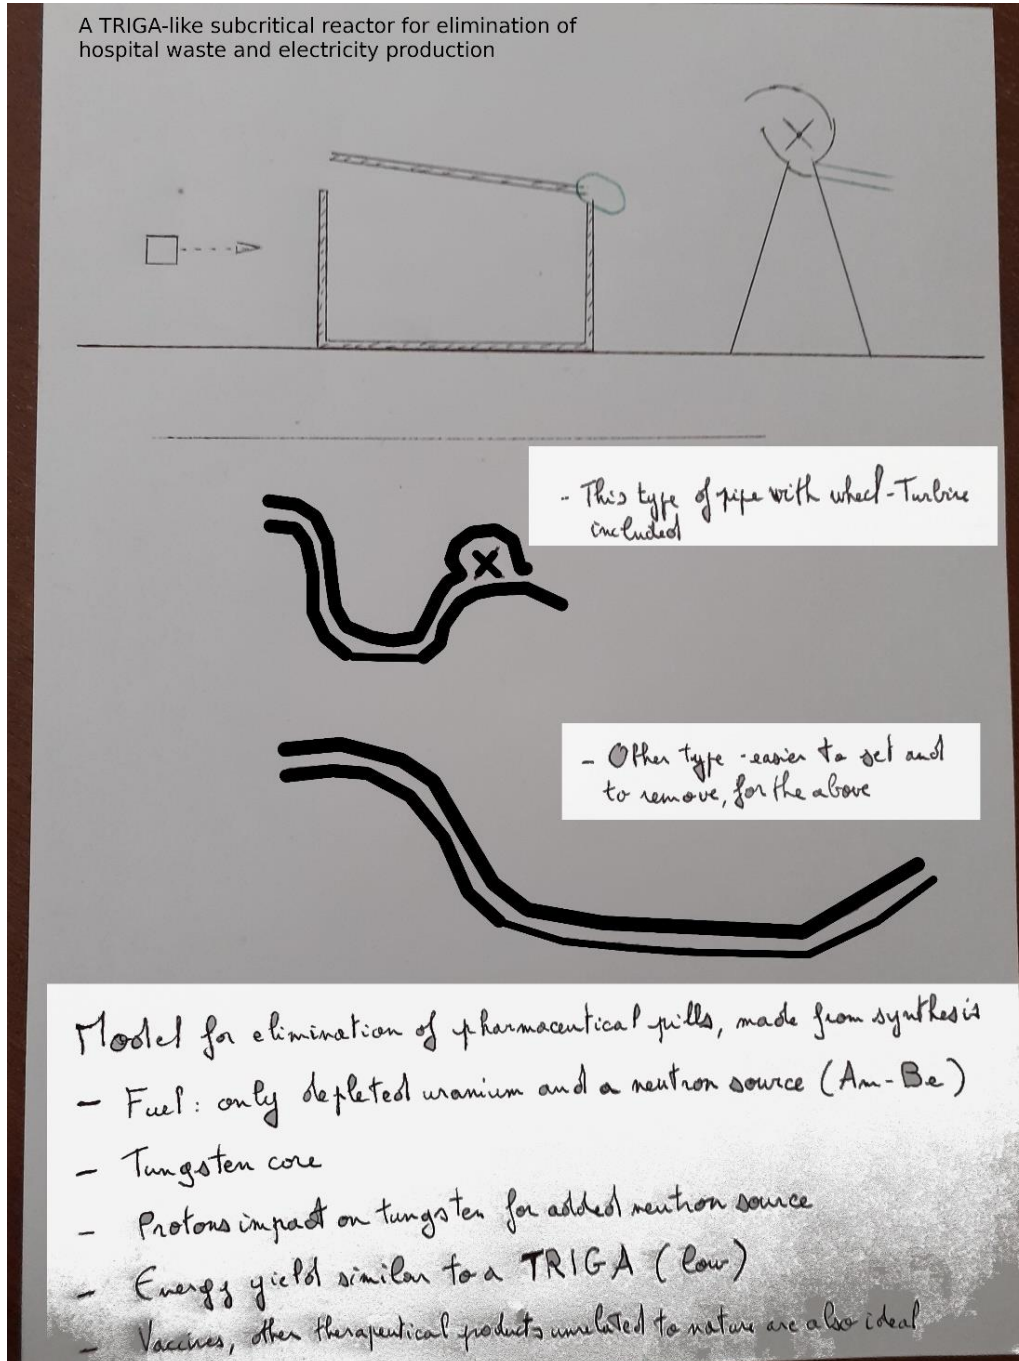 A TRIGA-like subcritical reactor for elimination of
hospital waste and electricity production
- This type of pipe with wheel-Turbine
included
- Other type - easier to set and
to remove, for the above
Model for elimination of pharmaceutical pills, made from synthesis
- Fuel: only depleted uranium and a neutron source (Am-Be)
- Tungsten core
- Protons impact on tungsten for added neutron source
- Energy yield similar to a TRIGA (low)
- Vaccines, other therapeutical products unrelated to nature are also ideal